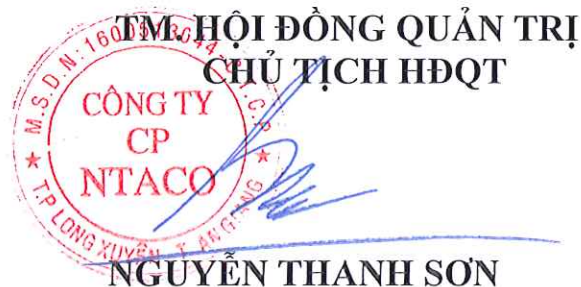 TM. HỘI ĐỒNG QUẢN TRỊ
CHỦ TỊCH HĐQT
CÔNG TY
CP
NTACO
T.P LONG XUYÊN T. AN GIANG
NGUYỄN THANH SƠN